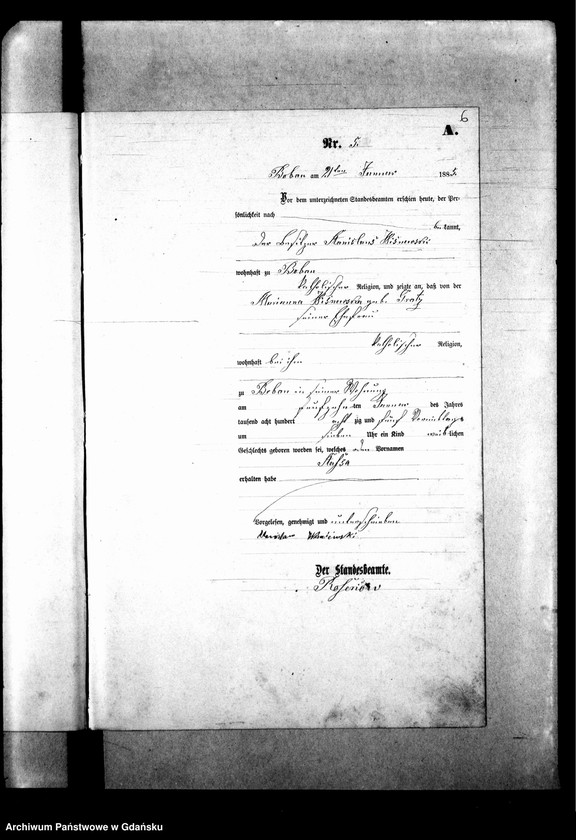 6
A.
Nr. 5.
Boban am 21ten Januar 1885.
Vor dem unterzeichneten Standesbeamten erschien heute, der Per-
sönlichkeit nach
be kannt,
der Besitzer Stanislaus Wisniewski
wohnhaft zu Boban
katholischer Religion, und zeigte an, daß von der
Marianna Wisniewska geb.
seiner Ehefrau
katholischer Religion,
wohnhaft bei ihm
zu Boban in seiner Wohnung
am fünfzehn ten Januar des Jahres
tausend acht hundert acht zig und fünf Vormittags
um sieben Uhr ein Kind weib lichen
Geschlechts geboren worden sei, welches den Vornamen
erhalten habe
Vorgelesen, genehmigt und unterschrieben
Der Standesbeamte.
Archiwum Państwowe w Gdańsku